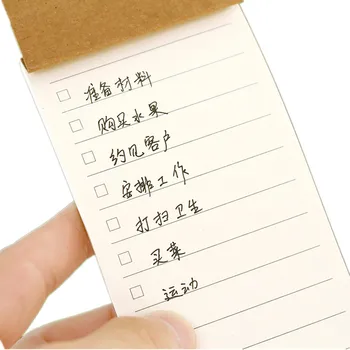 准备材料
购买水果
约见客户
安排工作
打扫卫生
买菜
运动